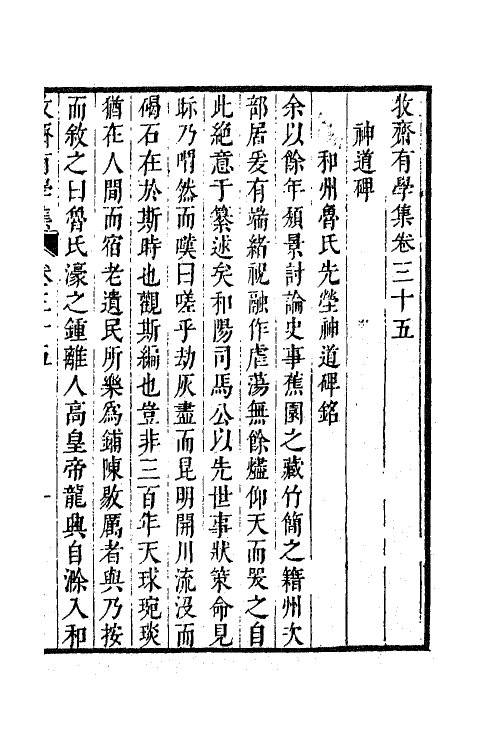 牧齋有學集卷三十五
神道碑
和州魯氏先塋神道碑銘
余以餘年頹景討論史事蕉園之藏竹簡之籍州次
部居爰有端緒祝融作虐蕩無餘燼仰天而哭之自
此絕意于纂述矣和陽司馬公以先世事狀策命見
眎乃喟然而嘆曰嗟乎劫灰盡而昆明開川流沒而
碣石在於斯時也觀斯編也豈非三百年天球琬琰
猶在人間而宿老遺民所樂爲鋪陳敭厲者與乃按
而敘之曰魯氏濠之鍾離人高皇帝龍興自滁入和
牧齋有學集 卷三十五 一